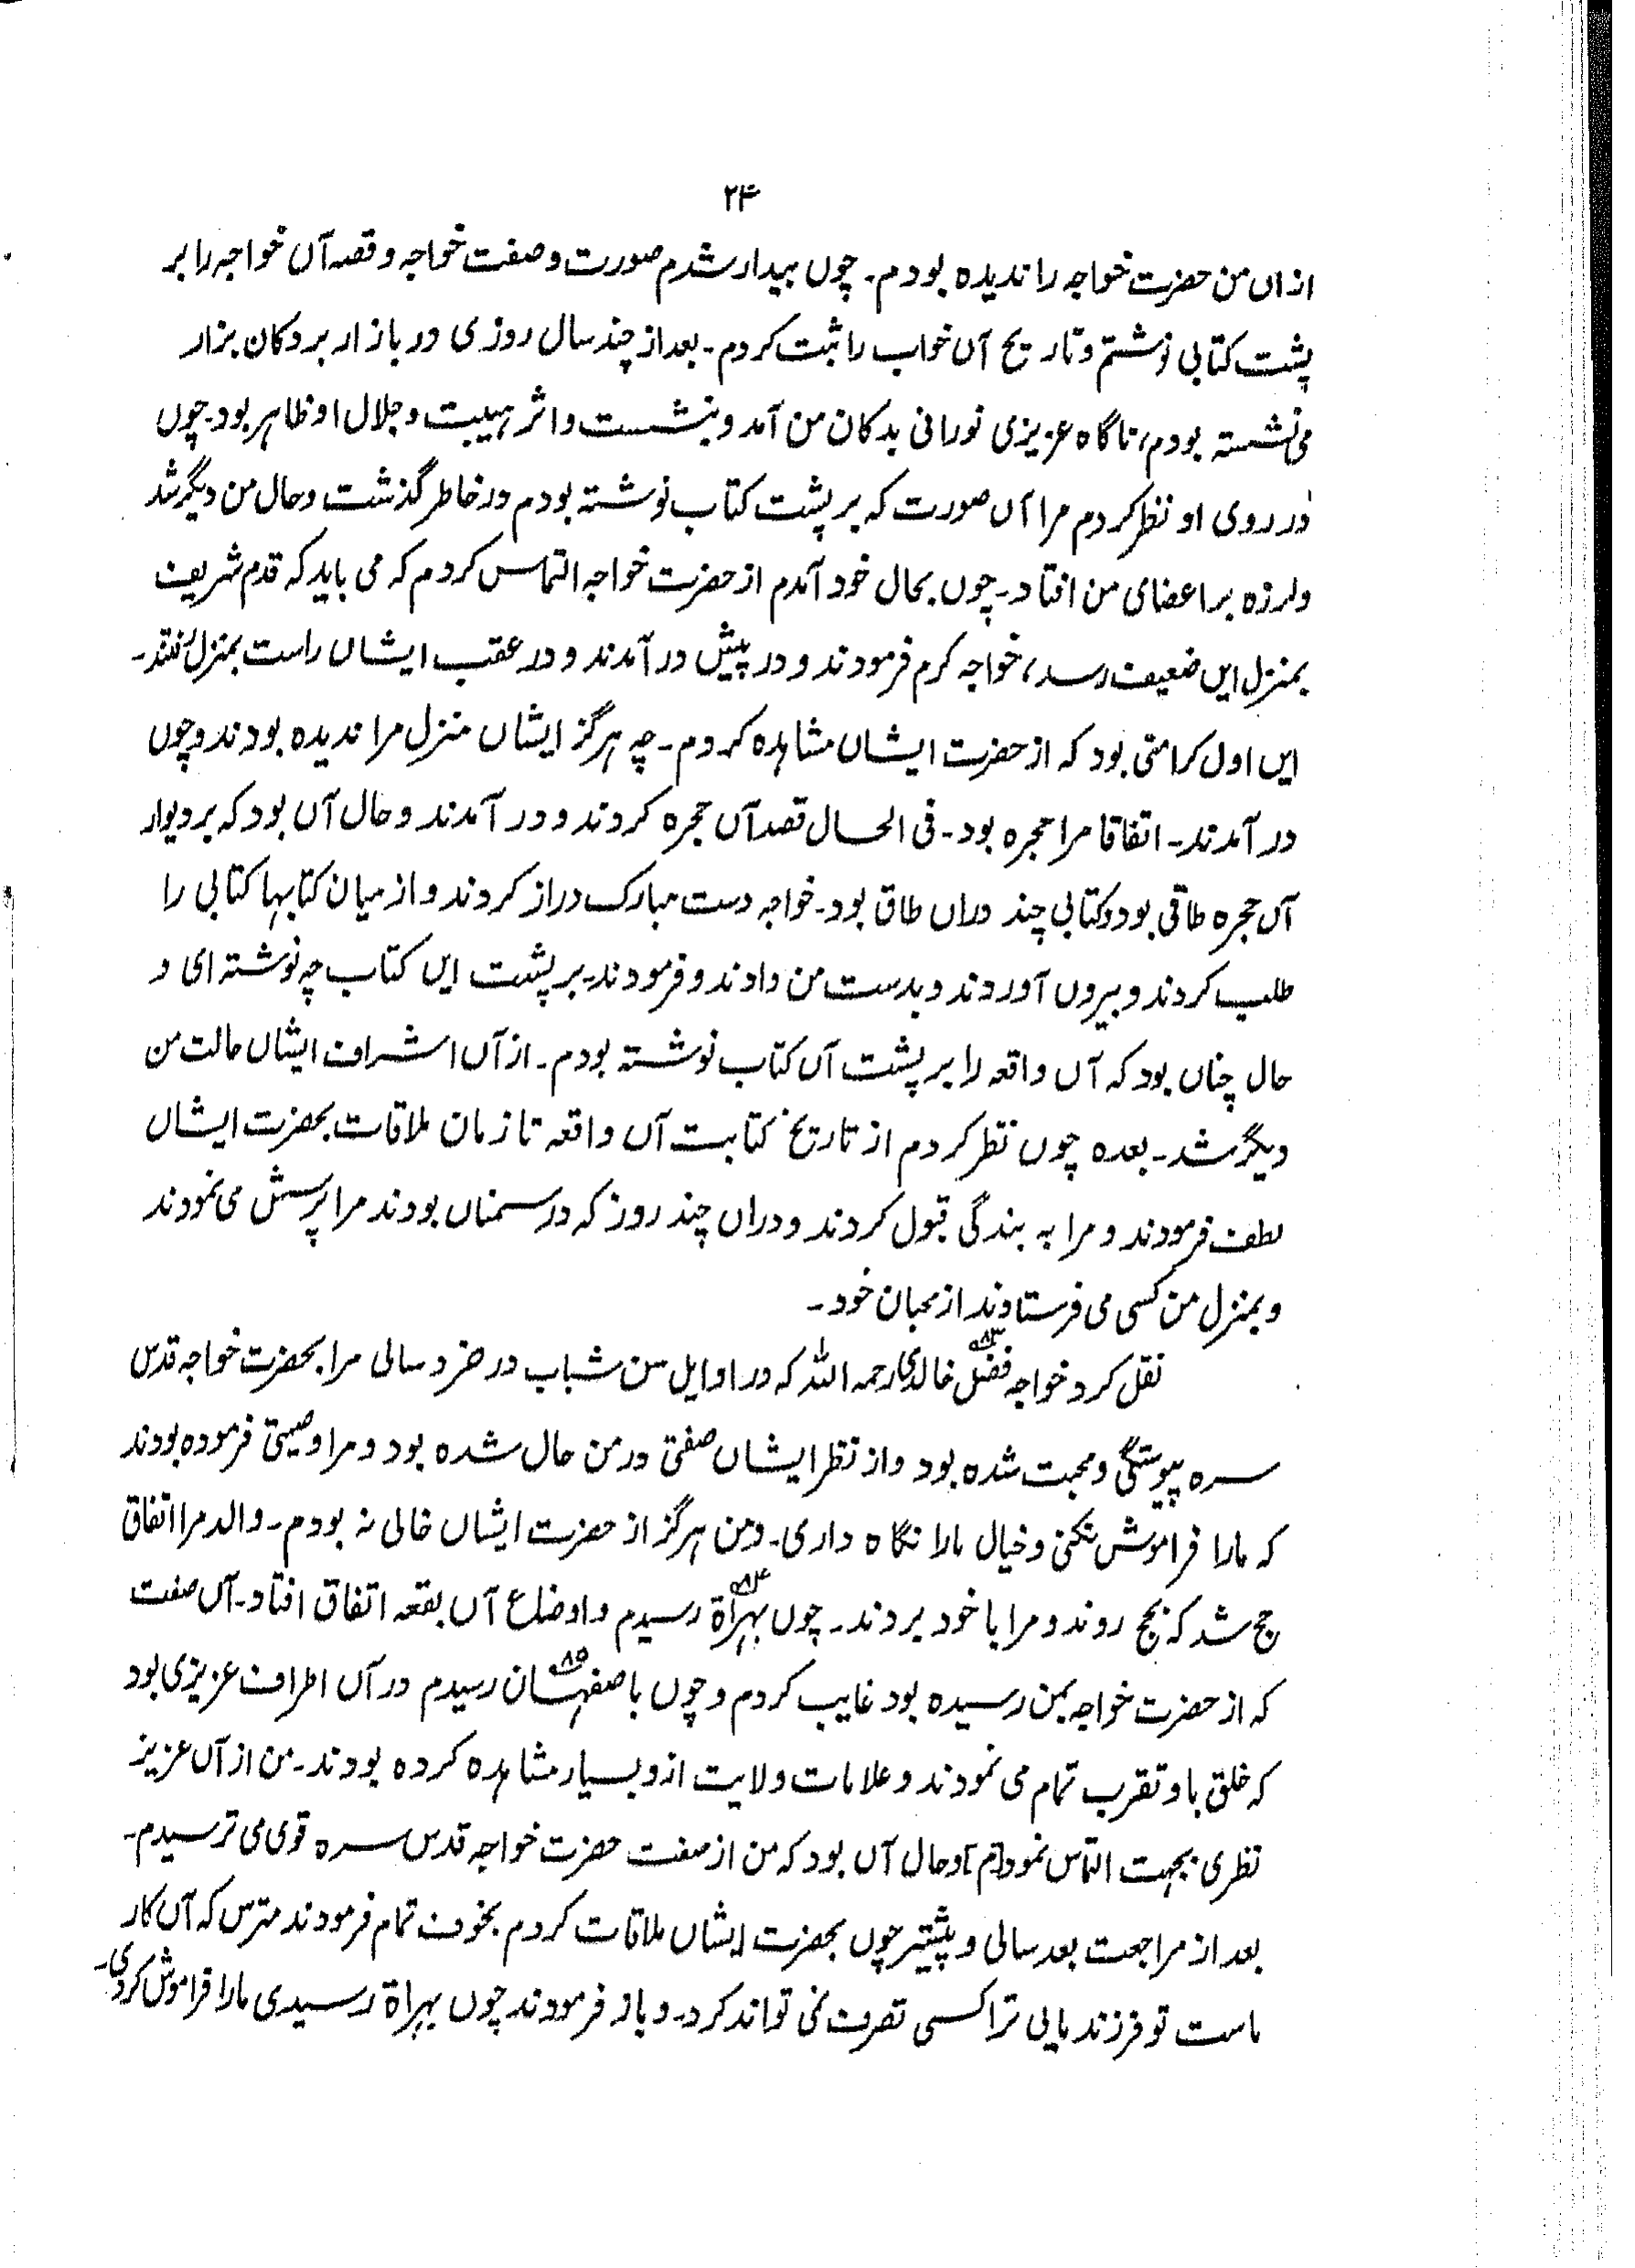 ۲۴
ازاں من حضرت خواجہ را ندیدہ بودم۔ چوں بیدار شدم صورت و صفت خواجہ و قصہ آں خواجہ را بر
پشت کتابی نوشتم و تاریخ آں خواب را ثبت کردم۔ بعد از چند سال روزی در بازار بر دکان بزار
می نشستہ بودم، ناگاہ عزیزی نورانی بدکان من آمد و بنشست و اثر ہیبت و جلال او ظاہر بود۔ چوں
در روی او نظر کردم مرا آں صورت کہ بر پشت کتاب نوشتہ بودم در خاطر گذشت و حال من دیگر شد
و لرزہ بر اعضای من افتاد۔ چوں بحال خود آمدم از حضرت خواجہ التماس کردم کہ می باید کہ قدم شریف
بمنزل ایں ضعیف رسد، خواجہ کرم فرمودند و در پیش در آمدند و در عقب ایشاں راست بمنزل رفتند۔
ایں اول کرامتی بود کہ از حضرت ایشاں مشاہدہ کردم۔ چہ ہرگز ایشاں منزل مرا ندیدہ بودند و چوں
در آمدند۔ اتفاقا مرا حجرہ بود۔ فی الحال قصد آں حجرہ کردند و در آمدند و حال آں بود کہ بر دیوار
آں حجرہ طاقی بود و کتابی چند دراں طاق بود۔ خواجہ دست مبارک دراز کردند و از میان کتابہا کتابی را
طلب کردند و بیروں آوردند و بدست من دادند و فرمودند۔ بر پشت ایں کتاب چہ نوشتہ ای و
حال چناں بود کہ آں واقعہ را بر پشت آں کتاب نوشتہ بودم۔ از آں اشراف ایشاں حالت من
دیگر شد۔ بعدہ چوں نظر کردم از تاریخ کتابت آں واقعہ تا زمان ملاقات بحضرت ایشاں
لطف فرمودند و مرا بہ بندگی قبول کردند و دراں چند روز کہ در سمناں بودند مرا پرسش می نمودند
و بمنزل من کسی می فرستادند از محبان خود۔
نقل کرد خواجہ فضل خالدی۸۳ رحمہ اللہ کہ در اوایل سن شباب در خرد سالی مرا بحضرت خواجہ قدس
سرہ پیوستگی و محبت شدہ بود و از نظر ایشاں صفتی در من حال شدہ بود و مرا وصیتی فرمودہ بودند
کہ مارا فراموش نکنی و خیال مارا نگاہ داری۔ و من ہرگز از حضرت ایشاں خالی نہ بودم۔ والد مرا اتفاق
حج شد کہ بحج روند و مرا با خود بردند۔ چوں بہراۃ۸۴ رسیدم و اوضاع آں بقعہ اتفاق افتاد۔ آں صفت
کہ از حضرت خواجہ بمن رسیدہ بود غایب کردم و چوں باصفہان۸۵ رسیدم در آں اطراف عزیزی بود
کہ خلق باو تقرب تمام می نمودند و علامات ولایت ازو بسیار مشاہدہ کردہ بودند۔ من از آں عزیز
نظری بجہت التماس نمودم و حال آں بود کہ من از صفت حضرت خواجہ قدس سرہ قوی می ترسیدم۔
بعد از مراجعت بعد سالی و پیشتر چوں بحضرت ایشاں ملاقات کردم بخوف تمام فرمودند مترس کہ آں کار
ماست تو فرزند مایی ترا کسی تصرف نمی تواند کرد۔ و باز فرمودند چوں بہراۃ رسیدی مارا فراموش کردی۔